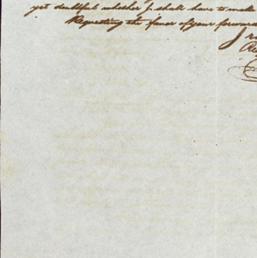 yet doubtful whether I shall have to make
Requesting the favor of your forward
I